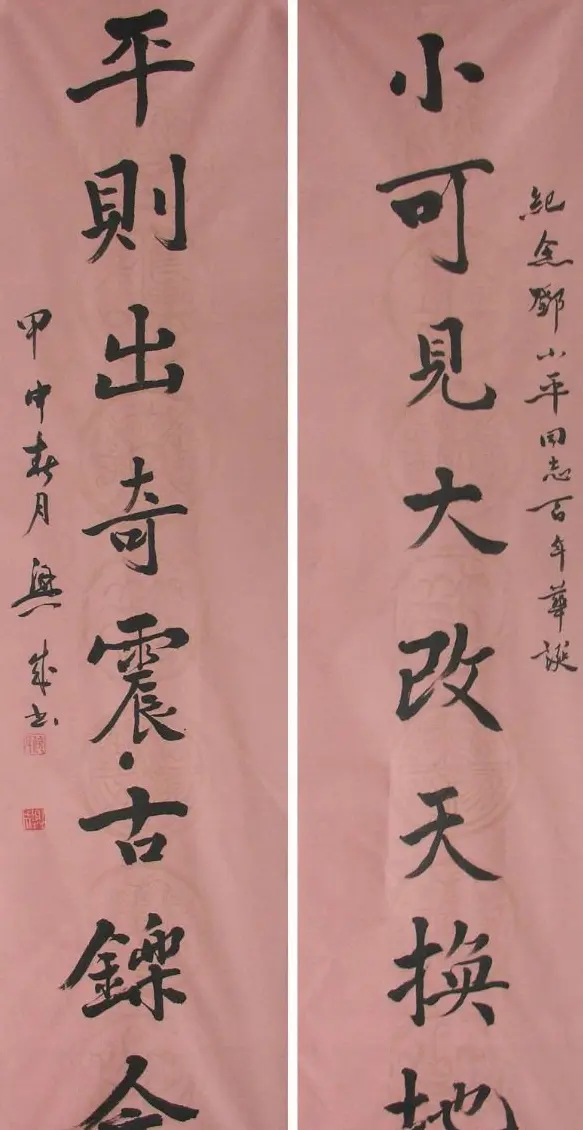 紀念鄧小平同志百年華誕
小可見大改天換地
平則出奇震古鑠今
甲申春月興成书